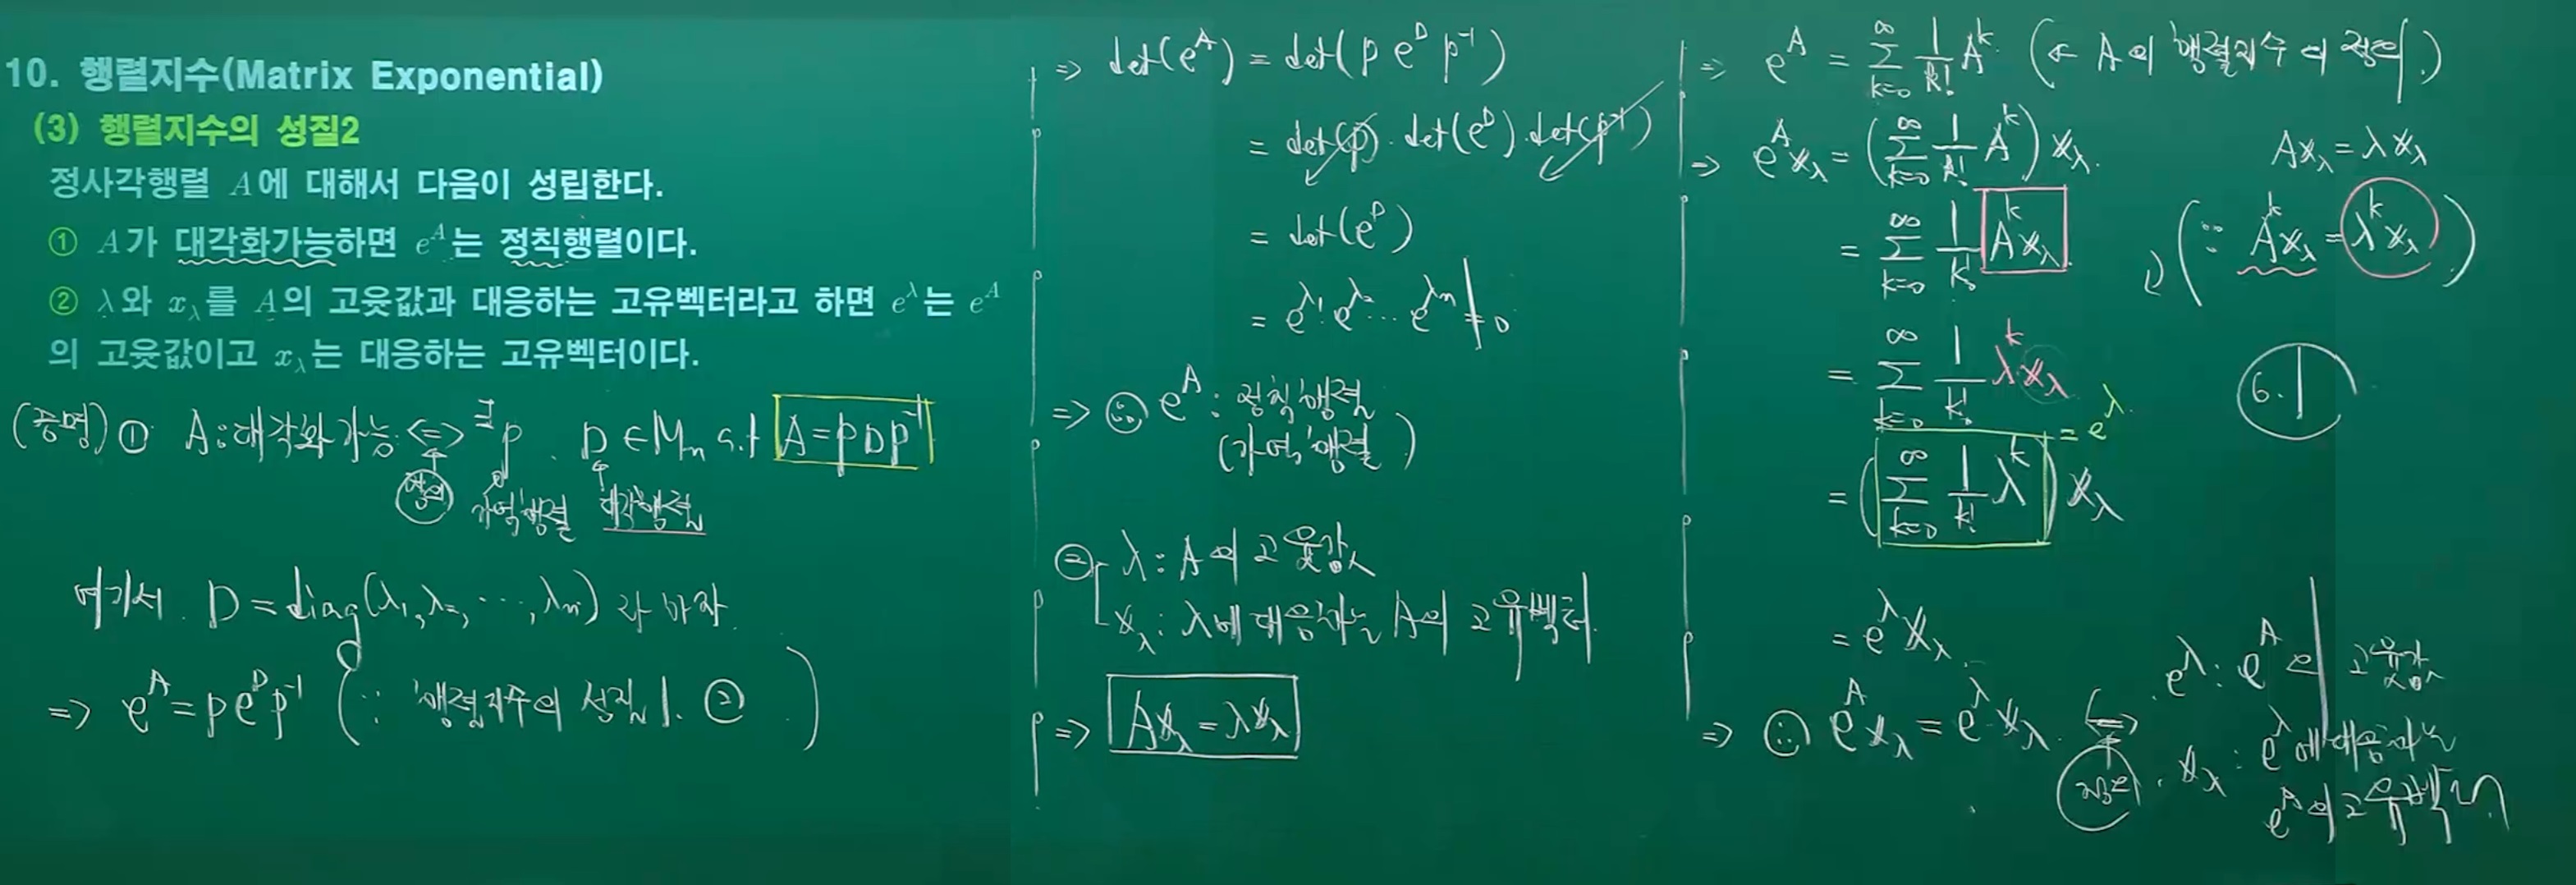 10. 행렬지수(Matrix Exponential)
(3) 행렬지수의 성질2
정사각행렬 A에 대해서 다음이 성립한다.
① A가 대각화가능하면 e^A는 정칙행렬이다.
② λ와 x_λ를 A의 고윳값과 대응하는 고유벡터라고 하면 e^λ는 e^A
의 고윳값이고 x_λ는 대응하는 고유벡터이다.
(증명) ① A:대각화가능 <=> ∃p . D ∈ M_n s.t A=pDp^-1
정의 가역행렬 대각행렬
여기서 D = diag(λ_1, λ_2, ⋯, λ_n) 라 하자.
=> e^A = p e^D p^-1 (∵ 행렬지수의 성질 1. ②)
=> det(e^A) = det(p e^D p^-1)
= det(p)·det(e^D)·det(p^-1)
= det(e^D)
= e^λ1 e^λ2 ⋯ e^λn ≠ 0
=> ∴ e^A : 정칙행렬
(가역행렬)
② λ : A의 고윳값
x_λ : λ에 대응하는 A의 고유벡터.
=> Ax_λ = λx_λ
=> e^A = ∑_{k=0}^∞ 1/k! A^k (← A의 행렬지수의 정의.)
=> e^A x_λ = (∑_{k=0}^∞ 1/k! A^k) x_λ. Ax_λ = λx_λ
= ∑_{k=0}^∞ 1/k! A^k x_λ. (∵ A^k x_λ = λ^k x_λ)
= ∑_{k=0}^∞ 1/k! λ^k x_λ 6.1
= (∑_{k=0}^∞ 1/k! λ^k) x_λ = e^λ.
= e^λ x_λ.
=> ∴ e^A x_λ = e^λ x_λ. <=> . e^λ : e^A의 고윳값
정의 . x_λ : e^λ에 대응하는
e^A의 고유벡터